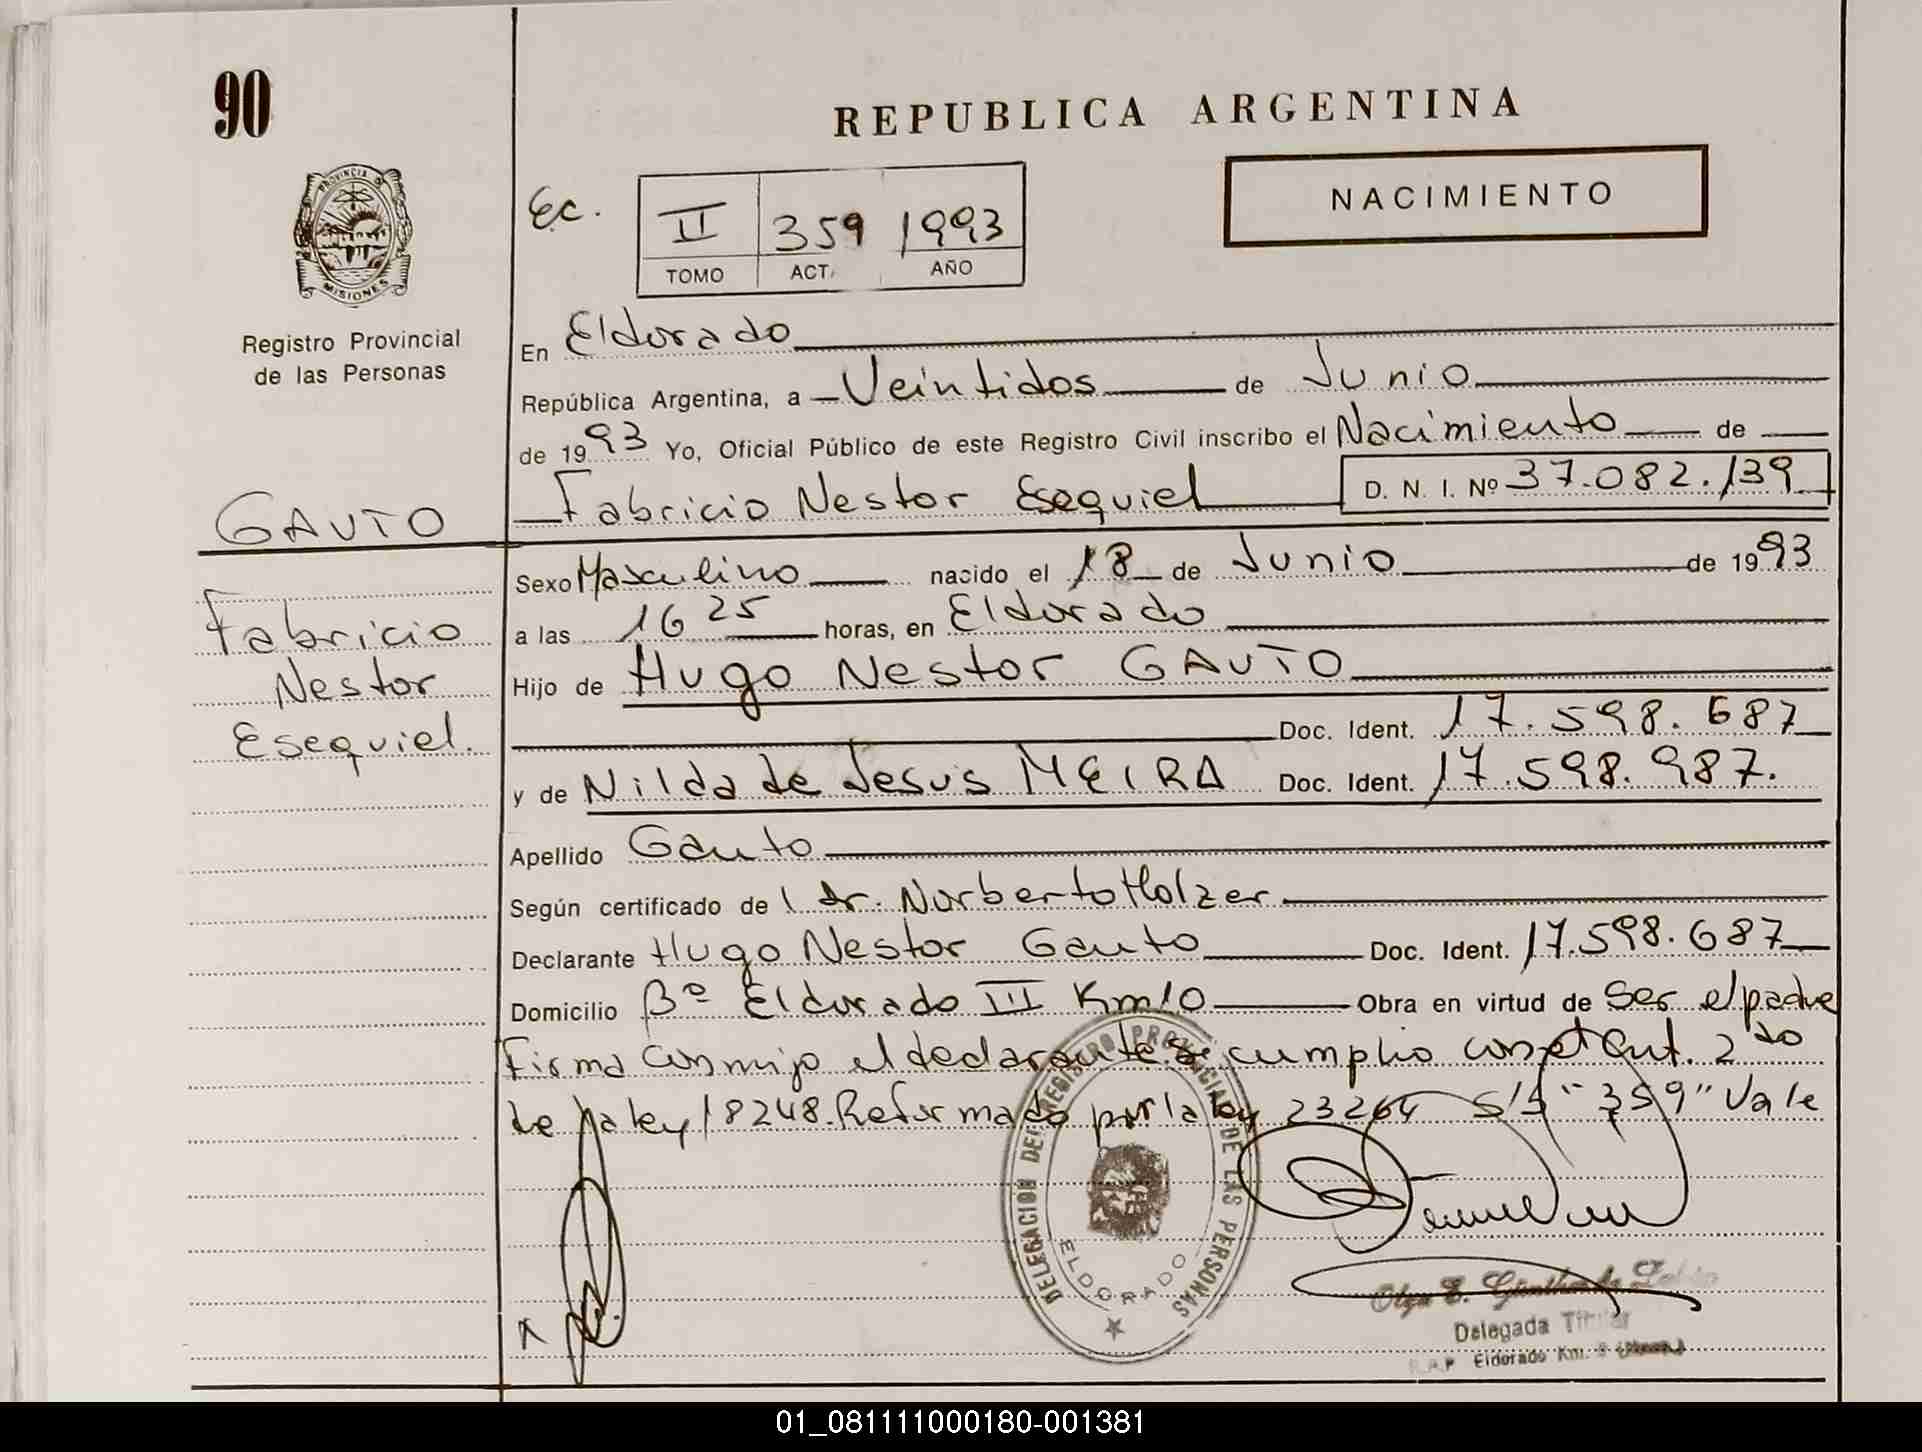 90
REPUBLICA ARGENTINA
PROVINCIA D
MISIONES
Registro Provincial
de las Personas
Ec.
II 359 1993
TOMO ACT. AÑO
NACIMIENTO
En Eldorado
República Argentina, a Veintidos de Junio
de 1993 Yo, Oficial Público de este Registro Civil inscribo el Nacimiento de
Fabricio Nestor Esequiel D. N. I. Nº 37.082.139
GAUTO
Fabricio
Nestor
Esequiel.
Sexo Masculino nacido el 18 de Junio de 1993
a las 16 25 horas, en Eldorado
Hijo de Hugo Nestor GAUTO
Doc. Ident. 17.598.687
y de Nilda de Jesus MEIRA Doc. Ident. 17.598.987.
Apellido Gauto
Según certificado de l dr. Norberto Holzer
Declarante Hugo Nestor Gauto Doc. Ident. 17.598.687
Domicilio Bº Eldorado III Km 10 Obra en virtud de Ser el padre
Firma conmigo el declarante. Se cumplio con el Art. 2do
de la ley 18248. Reformado por la ley 23264 S/S "359" Vale
DELEGACION DEL REGISTRO PROVINCIAL DE LAS PERSONAS
ELDORADO
Olga E.
Delegada Titular
Eldorado Km.
01_081111000180-001381